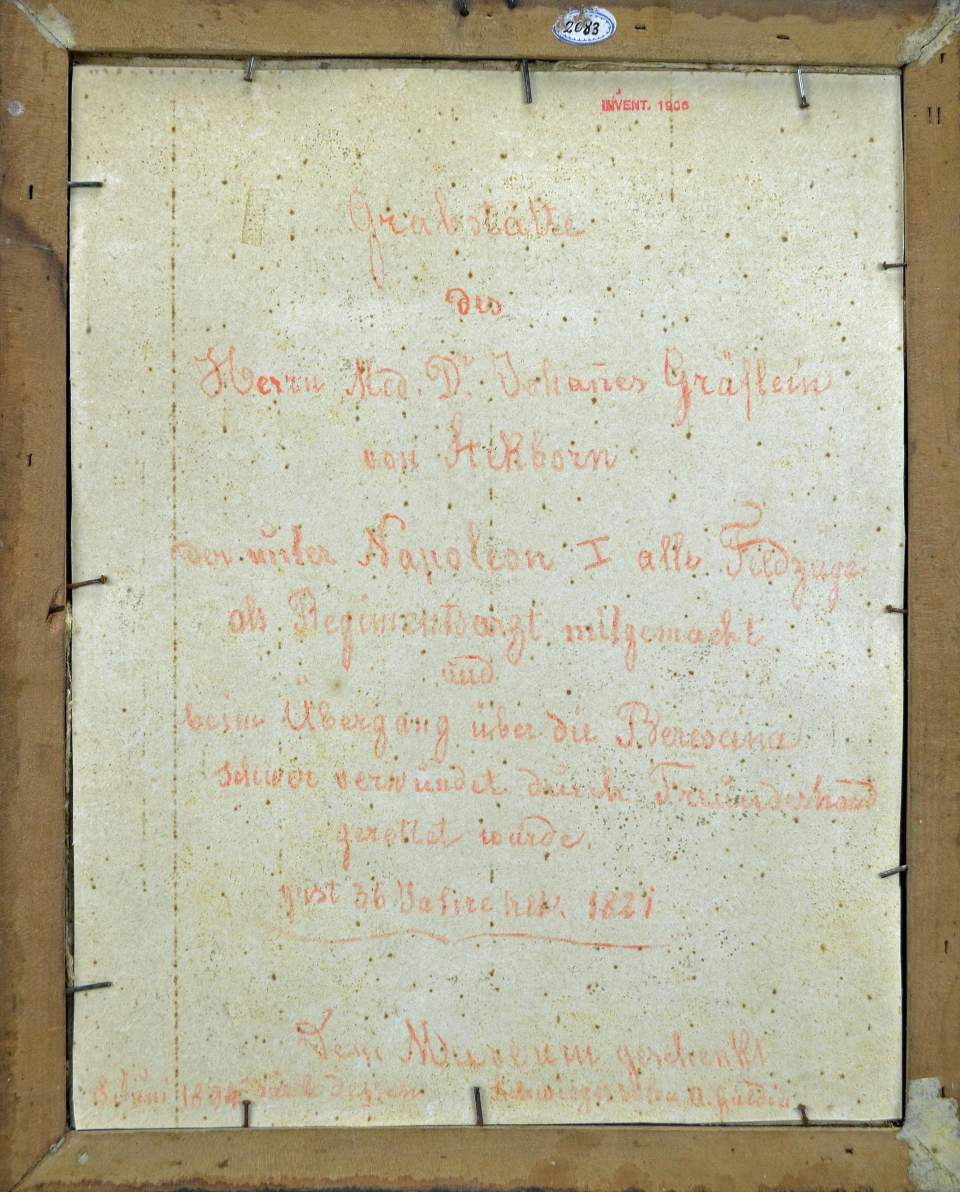 2083
INVENT. 1906
Grabstätte
des
Herrn Med. Dr. Johañes Gräflein
von Stekborn
der unter Napoleon I alle Feldzüge
als Regimentsarzt mitgemacht
und
beim Übergang über die Beresina
schwer verwundet durch Freundeshand
gerettet wurde.
36 Jahre 1821
Dem Museum geschenkt
8 Juni 1894 durch dessen Schwiegersohn U. Guldin